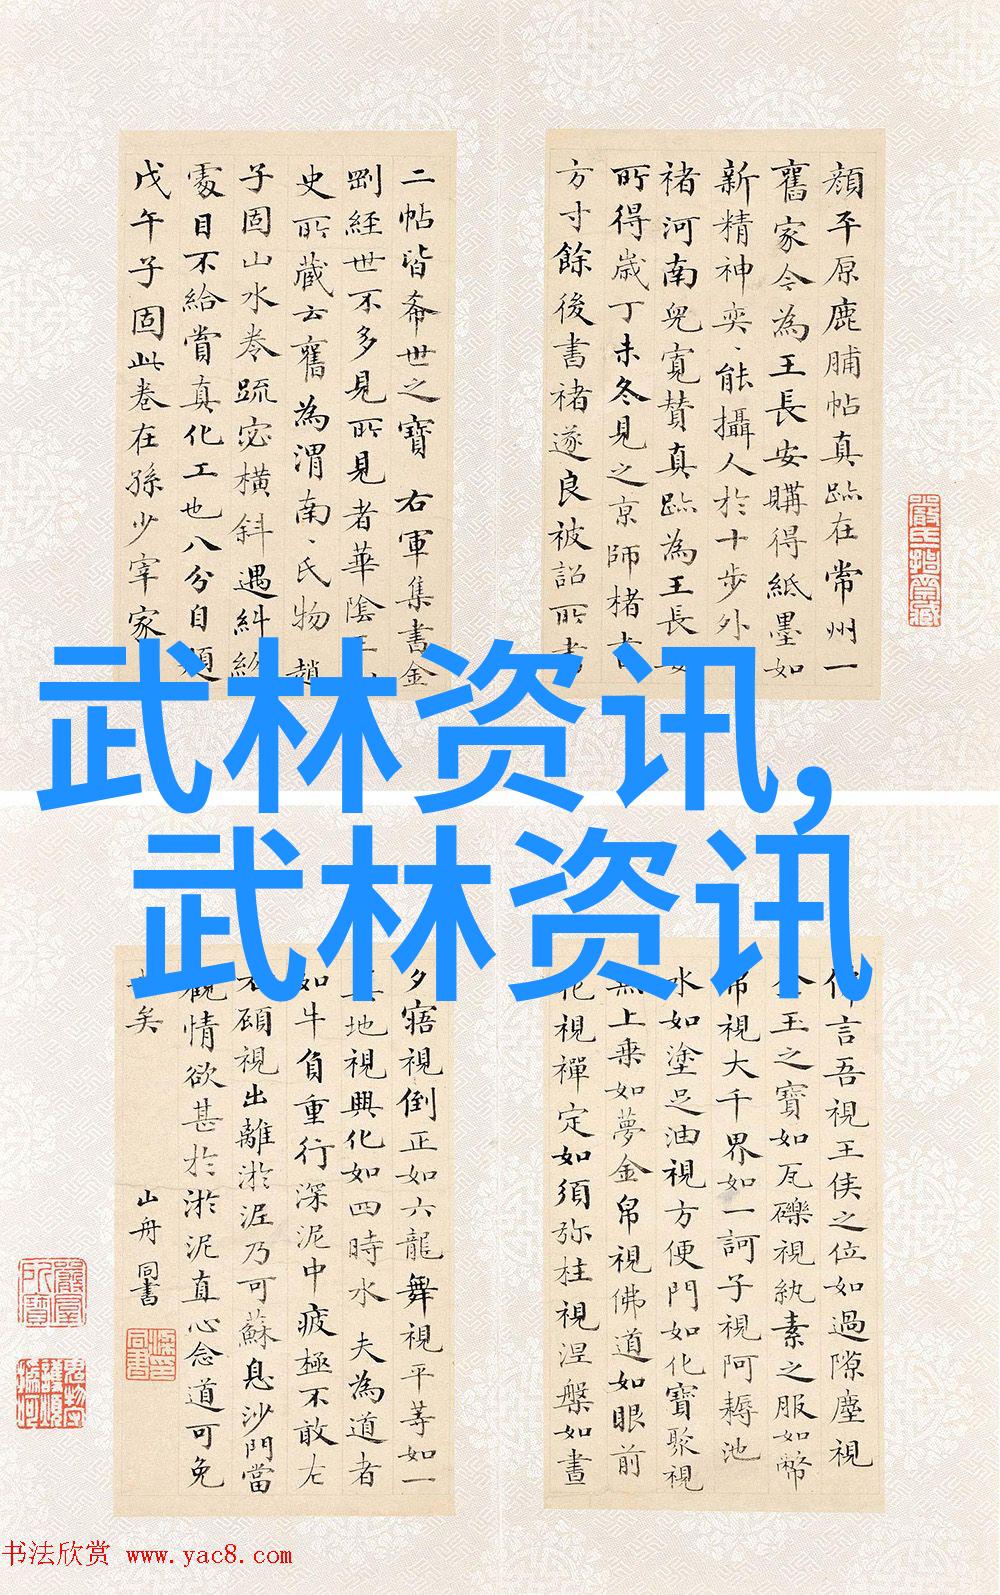 顔平原鹿脯帖真跡在常州一
舊家今為王長安購得紙墨如
新精神奕、能攝人於十步外
褚河南兒寬贊真跡為王長安
所得歲丁未冬見之京師楮書
方寸餘後書褚遂良被詔所書
二帖皆希世之寶 右軍集書金
剛經世不多見所見者華陰王
史所藏云舊為渭南、氏物趙
子固山水卷疏密橫斜遇糾紛
處目不給賞真化工也八分自題
戊午子固此卷在孫少宰家
武林资讯,
武林资讯
佛言吾視王侯之位如過隙塵視
金玉之寶如瓦礫視紈素之服如幣
帛視大千界如一訶子視阿耨池
水如塗足油視方便門如化寶聚視
無上乗如夢金帛視佛道如眼前
花視禪定如須弥柱視涅槃如晝
夕寤視倒正如六龍舞視平等如一
真地視興化如四時水 夫為道者
如牛負重行深泥中疲極不敢左
右顧視出離淤泥乃可蘇息沙門當
觀情欲甚於淤泥直心念道可免
苦矣
山舟 同書
书法欣赏 www.yac8.com